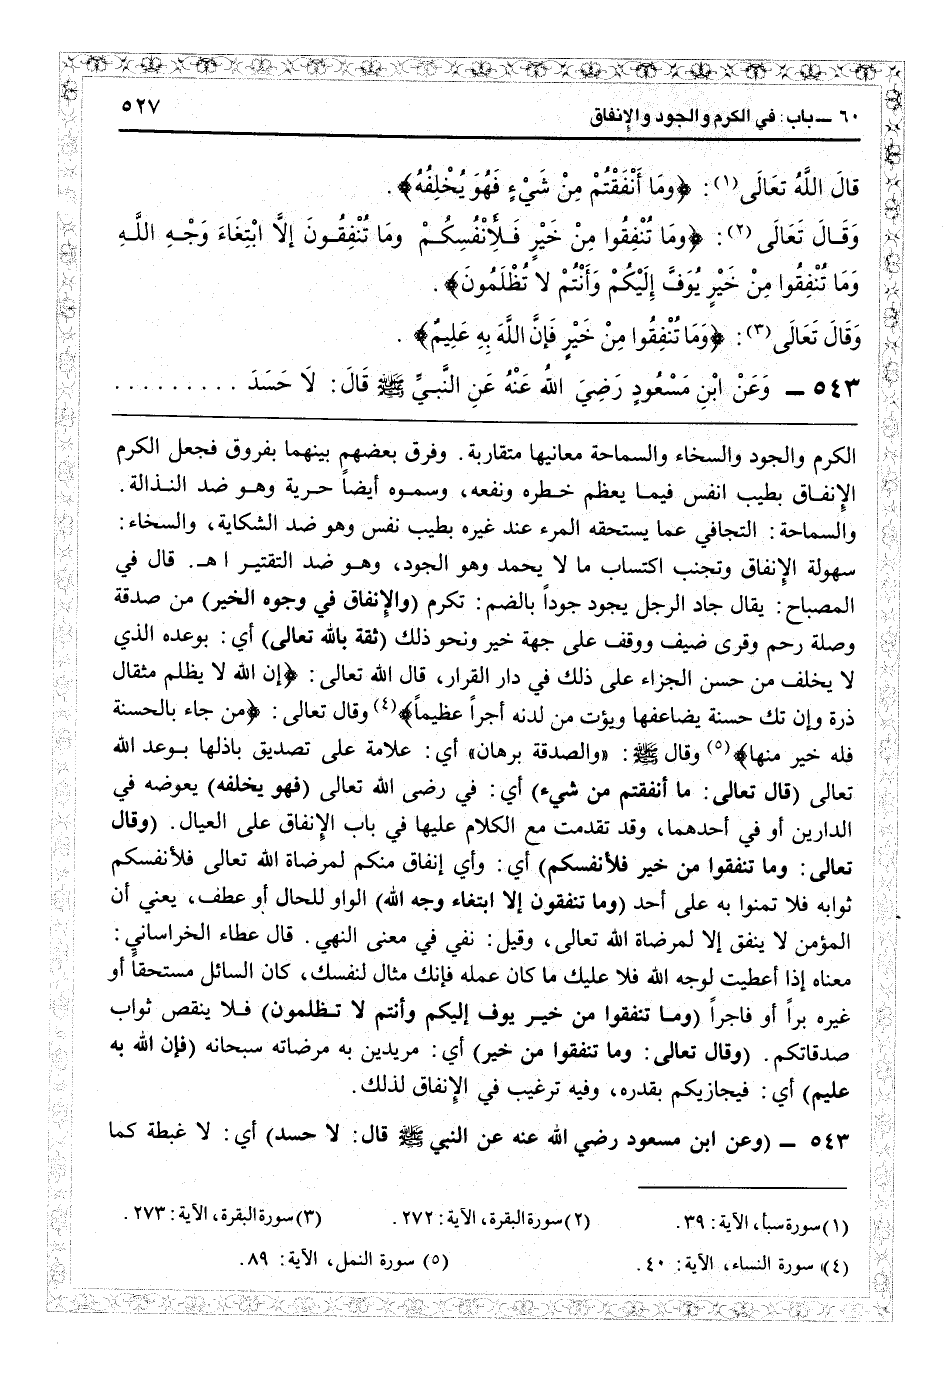 ٦٠ ــ باب: في الكرم والجود والإنفاق
٥٢٧
قالَ اللَّهُ تعَالَى(١): ﴿وما أَنْفَقْتُمْ مِنْ شَيْءٍ فَهُوَ يُخْلِفُهُ﴾.
وَقَـالَ تَعَالَى(٢): ﴿وما تُنْفِقُوا مِنْ خَيْرٍ فَـلأَنْفُسِكُـمْ وما تُنْفِقُـونَ إلاَّ ابْتِغَاءَ وَجْـهِ اللَّـهِ
وَمَا تُنْفِقُوا مِنْ خَيْرٍ يُوَفَّ إِلَيْكُمْ وَأَنْتُمْ لا تُظْلَمُونَ﴾.
وَقَالَ تَعَالَى(٣): ﴿وَمَا تُنْفِقُوا مِنْ خَيْرٍ فَإِنَّ اللَّهَ بِهِ عَلِيمٌ﴾.
٥٤٣ ــ وَعَنْ ابْنِ مَسْعُودٍ رَضِيَ اللهُ عَنْهُ عَنِ النَّبيِّ ﷺ قَالَ: لاَ حَسَدَ .........
الكرم والجود والسخاء والسماحة معانيها متقاربة. وفرق بعضهم بينهما بفروق فجعل الكرم
الإنفـاق بطيب انفس فيمـا يعظم خـطره ونفعه، وسمـوه أيضـاً حـرية وهـو ضد النـذالة.
والسماحة: التجافي عما يستحقه المرء عند غيره بطيب نفس وهو ضد الشكاية، والسخاء:
سهولة الإنفاق وتجنب اكتساب ما لا يحمد وهو الجود، وهـو ضد التقتيـر ا هـ. قال في
المصباح: يقال جاد الرجل يجود جوداً بالضم: تكرم (والإنفاق في وجوه الخير) من صدقة
وصلة رحم وقرى ضيف ووقف على جهة خير ونحو ذلك (ثقة بالله تعالى) أي: بوعده الذي
لا يخلف من حسن الجزاء على ذلك في دار القرار، قال الله تعالى: ﴿إن الله لا يظلم مثقال
ذرة وإن تك حسنة يضاعفها ويؤت من لدنه أجراً عظيماً﴾(٤) وقال تعالى: ﴿من جاء بالحسنة
فله خير منها﴾(٥) وقال ﷺ: «والصدقة برهان» أي: علامة على تصديق باذلها بـوعد الله
تعالى (قال تعالى: ما أنفقتم من شيء) أي: في رضى الله تعالى (فهو يخلفه) يعوضه في
الدارين أو في أحدهما، وقد تقدمت مع الكلام عليها في باب الإنفاق على العيال. (وقال
تعالى: وما تنفقوا من خير فلأنفسكم) أي: وأي إنفاق منكم لمرضاة الله تعالى فلأنفسكم
ثوابه فلا تمنوا به على أحد (وما تنفقون إلا ابتغاء وجه الله) الواو للحال أو عطف، يعني أن
المؤمن لا ينفق إلا لمرضاة الله تعالى، وقيل: نفي في معنى النهي. قال عطاء الخراساني:
معناه إذا أعطيت لوجه الله فلا عليك ما كان عمله فإنك مثال لنفسك، كان السائل مستحقاً أو
غيره براً أو فاجراً (ومـا تنفقوا من خيـر يوف إليكم وأنتم لا تـظلمون) فـلا ينقص ثواب
صدقاتكم. (وقال تعالى: وما تنفقوا من خير) أي: مريدين به مرضاته سبحانه (فإن الله به
عليم) أي: فيجازيكم بقدره، وفيه ترغيب في الإنفاق لذلك.
٥٤٣ ــ (وعن ابن مسعود رضي الله عنه عن النبي ﷺ قال: لا حسد) أي: لا غبطة كما
(١) سورة سبأ، الآية: ٣٩. (٢) سورة البقرة، الآية: ٢٧٢. (٣) سورة البقرة، الآية: ٢٧٣.
(٤) سورة النساء، الآية: ٤٠. (٥) سورة النمل، الآية: ٨٩.